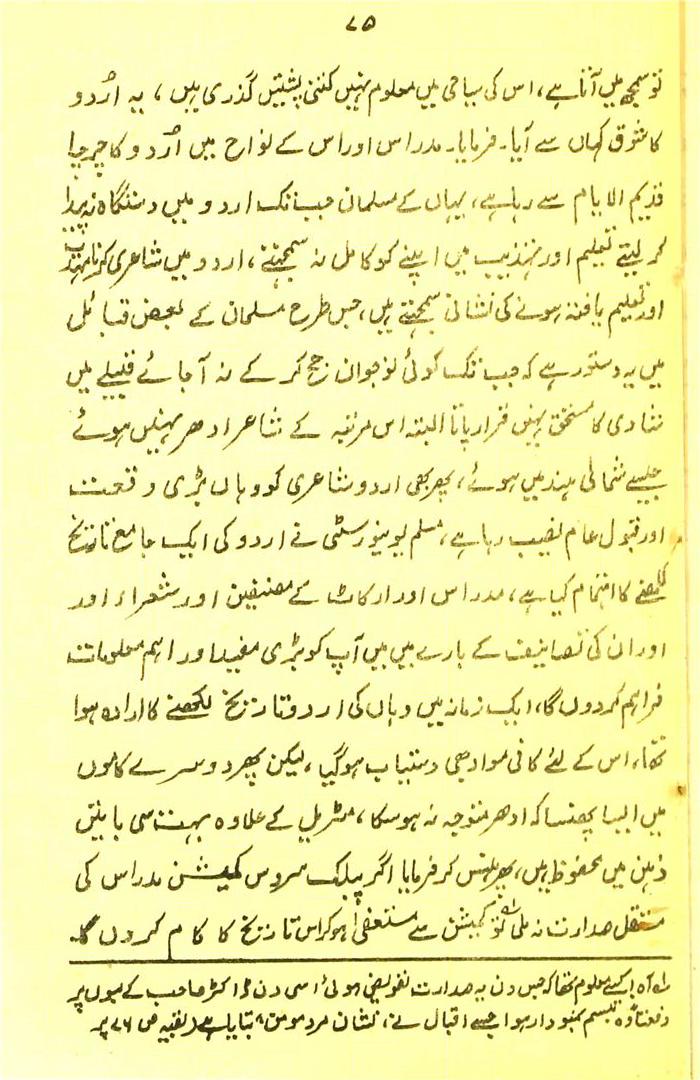 ۷۵
تو سمجھ میں آتا ہے، اس کی سیاحی میں معلوم نہیں کتنی پشتیں گذری ہیں، یہ اردو
کا شوق کہاں سے آیا۔ فرمایا۔ مدراس اور اس کے نواح میں اردو کا چرچا
قدیم الایام سے رہا ہے، یہاں کے مسلمان جب تک اردو میں دستگاہ نہ پیدا
کر لیتے تعلیم اور تہذیب میں اپنے کو کامل نہ سمجھتے، اردو میں شاعری کرنا تہذیب
اور تعلیم یافتہ ہونے کی نشانی سمجھتے ہیں، جس طرح مسلمان کے بعض قبائل
میں یہ دستور ہے کہ جب تک کوئی نوجوان حج کر کے نہ آجائے قبیلے میں
شادی کا مستحق نہیں قرار پاتا البتہ اس مرتبہ کے شاعر ادھر نہیں ہوئے
جیسے شمالی ہند میں ہوئے، پھر بھی اردو شاعری کو وہاں بڑی وقعت
اور قبول عام نصیب رہا ہے، مسلم یونیورسٹی نے اردو کی ایک جامع تاریخ
لکھنے کا اہتمام کیا ہے، مدراس اور ارکاٹ کے مصنفین اور شعراء اور
اور ان کی تصانیف کے بارے میں میں آپ کو بڑی مفید اور اہم معلومات
فراہم کردوں گا، ایک زمانہ میں وہاں کی اردو تاریخ لکھنے کا ارادہ ہوا
تھا، اس کے لئے کافی مواد بھی دستیاب ہوگیا، لیکن پھر دوسرے کاموں
میں ایسا پھنسا کہ ادھر متوجہ نہ ہوسکا، مٹریل کے علاوہ بہت سی باتیں
ذہن میں محفوظ ہیں، پھر ہنس کر فرمایا اگر پبلک سروس کمیشن مدراس کی
مستقل صدارت نہ ملی تو کمیشن سے مستعفی ہو کر اس تاریخ کا کام کردوں گا۔
لہ آہ! کسے معلوم تھا کہ جس دن یہ صدارت تفویض ہوئی اسی دن ڈاکٹر صاحب کے لبوں پر
دفعتاً وہ تبسم نمودار ہوا جسے اقبال نے، نشان مرد مومن، بتایا ہے (بقیہ ص ۷۶ پر